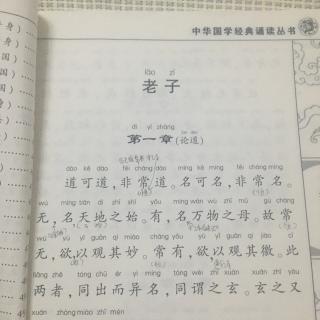 中华国学经典诵读丛书
lǎo zǐ
老子
dì yī zhāng
第一章(论道)
dào kě dào fēi cháng dào míng kě míng fēi cháng míng
道可道,非常道。名可名,非常名。
wú míng tiān dì zhī shǐ yǒu míng wàn wù zhī mǔ gù cháng
无,名天地之始。有,名万物之母。故常
wú yù yǐ guān qí miào cháng yǒu yù yǐ guān qí jiào cǐ
无,欲以观其妙。常有,欲以观其徼。此
liǎng zhě tóng chū ér yì míng tóng wèi zhī xuán xuán zhī yòu
两者,同出而异名,同谓之玄。玄之又
xuán zhòng miào zhī mén